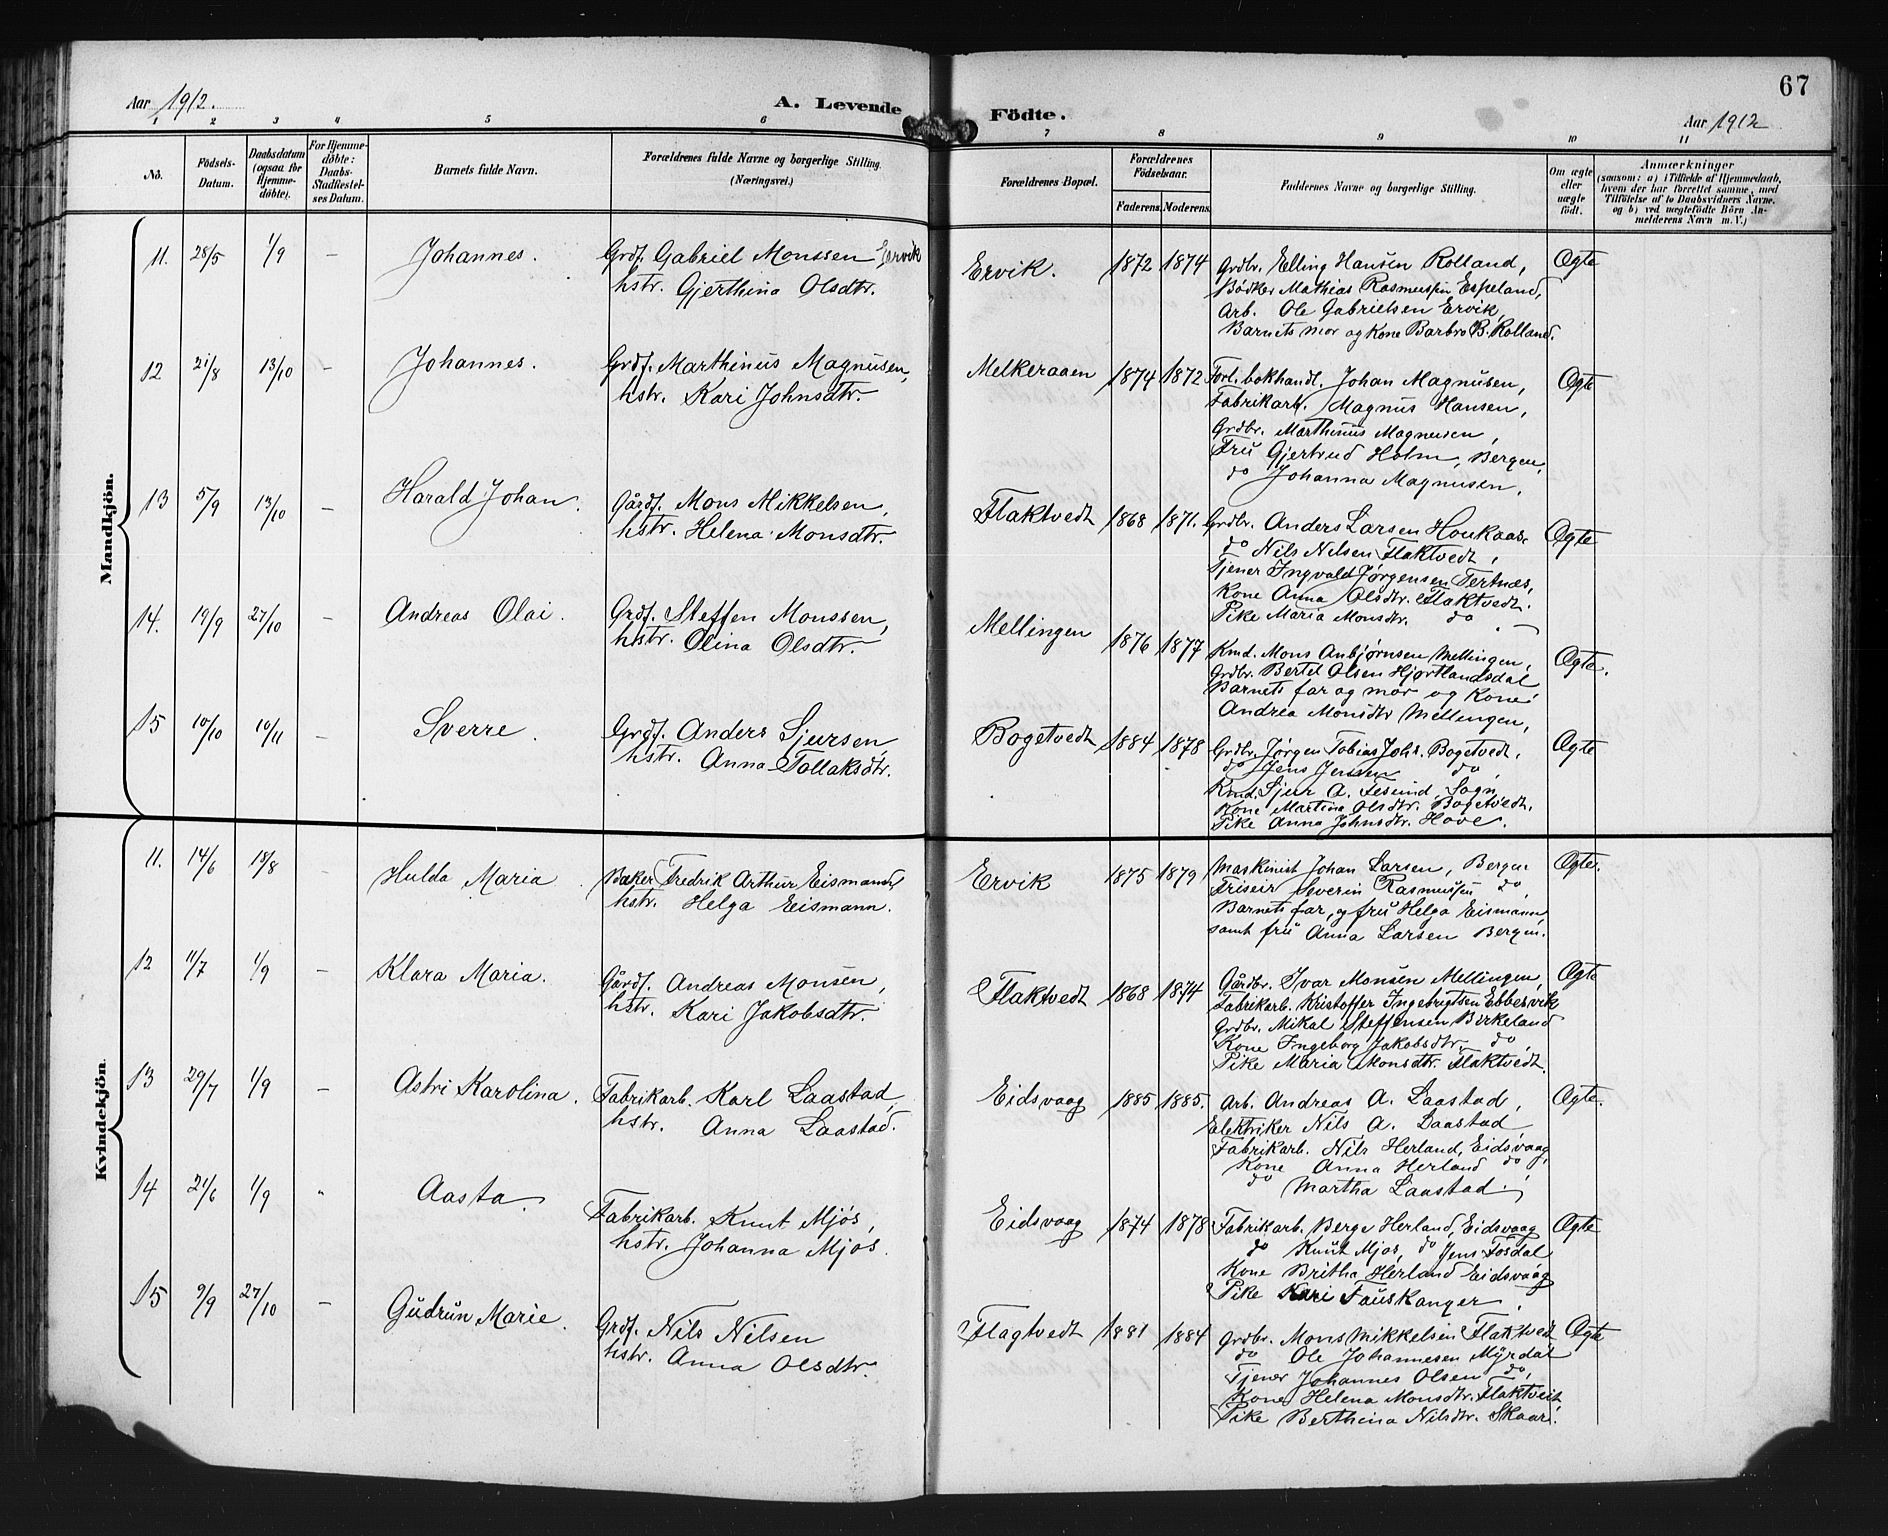 Aar 1912.
A. Levende
1 2 3 4 5 6
No.
Födsels-Datum.
Daabsdatum (ogsaa for Hjemme-döbte).
For Hjemme-döbte: Daabs-Stadfæstelses Datum.
Barnets fulde Navn.
Forældrenes fulde Navne og borgerlige Stilling. (Næringsvei.)
Mandkjön.
11. 28/5 1/9 — Johannes. Grdf. Gabriel Monssen Ervik
hstr. Gjerthina Olsdtr.
12 21/8 13/10 — Johannes. Grdf. Marthinus Magnusen,
hstr. Kari Johnsdtr.
13 5/9 13/10 — Harald Johan. Gårdf. Mons Mikkelsen,
hstr. Helena Monsdtr.
14. 19/9 27/10 — Andreas Olai. Grdf. Steffen Monssen,
hstr. Olina Olsdtr.
15 10/10 10/11 — Sverre. Grdf. Anders Sjursen,
hstr. Anna Tollaksdtr.
Kvindekjön.
11. 14/6 18/8 — Hulda Maria Baker Fredrik Arthur Eismann,
hstr. Helga Eismann.
12 11/7 1/9 — Klara Maria. Gårdf. Andreas Monsen,
hstr. Kari Jakobsdtr.
13 29/7 1/9 — Astri Karolina. Fabrikarb. Karl Laastad,
hstr. Anna Laastad.
14 21/6 1/9 " Aasta. Fabrikarb. Knut Mjøs,
hstr. Johanna Mjøs.
15 9/9 27/10 — Gudrun Marie. Grdf. Nils Nilsen
hstr. Anna Olsdtr.
67
Födte.
Aar 1912
7 8 9 10 11
Forældrenes Bopæl.
Forældrenes Födselsaar.
Faderens. Moderens.
Faddernes Navne og borgerlige Stilling.
Om ægte eller uægte födt.
Anmærkninger
(saasom: a) i Tilfælde af Hjemmedaab, hvem der har forrettet samme, med Tilföielse af to Daabsvidners Navne. og b) ved uægtefödte Börn Anmelderens Navn m. V.)
Ervik. 1872 1874 Grdbr. Elling Hansen Rolland, Ægte
Bødker Mathias Rasmussen Espeland,
Arb. Ole Gabrielsen Ervik,
Barnets mor og Kone Barbro B. Rolland.
Melkeraaen 1874 1872 Forl. bokhandl. Johan Magnusen, Ægte
Fabrikarb. Magnus Hansen,
Grdbr. Marthinus Magnusen,
Fru Gjertrud Holm, Bergen,
do Johanna Magnusen.
Flaktvedt 1868 1871. Grdbr. Anders Larsen Houkaas, Ægte
do Nils Nilsen Flaktvedt,
Tjener Ingvald Jørgensen Tertnæs,
Kone Anna Olsdtr. Flaktvedt.
Pike Maria Monsdtr. do
Mellingen 1876 1877 Kmd. Mons Anbjørnsen Mellingen, Ægte.
Grdbr. Bertel Olsen Hjortlandsdal
Barnets far og mor og Kone
Andrea Monsdtr Mellingen,
Bogetvedt 1884 1878 Grdbr. Jørgen Tobias Johs. Bogetvedt, Ægte
do Jens Jensen do,
Kmd. Sjur A. Sogn
Kone Martina Olsdtr. Bogetvedt.
Pike Anna Johnsdtr. Hove.
Ervik 1875 1879 Maskinist Johan Larsen, Bergen Ægte.
Friseur Severin Rasmussen do,
Barnets far, og fru Helga Eismann,
samt fru Anna Larsen Bergen.
Flaktvedt 1868 1874 Gårdbr. Ivar Monsen Mellingen, Ægte
Fabrikarb. Kristoffer Ingebrigtsen Ebbesvik
Grdbr. Mikal Steffensen Birkeland
Kone Ingeborg Jakobsdtr. do,
Pike Maria Monsdtr. Flaktvedt.
Eidsvaag 1885 1885. Arb. Andreas A. Laastad, Ægte.
Elektriker Nils A. Laastad
Fabrikarb. Nils Herland, Eidsvaag,
Kone Anna Herland do,
do Martha Laastad.
Eidsvaag 1874 1878 Fabrikarb. Berge Herland, Eidsvaag Ægte
do Knut Mjøs, do Jens Fosdal
Kone Britha Herland Eidsvaag
Pike Kari Fauskanger.
Flagtvedt 1881 1884 Grdbr. Mons Mikkelsen Flaktvedt Ægte
do Ole Johannesen Myrdal
Tjener Johannes Olsen do,
Kone Helena Monsdtr. Flaktveit
Pike Berthina Nilsdtr. Skaar.